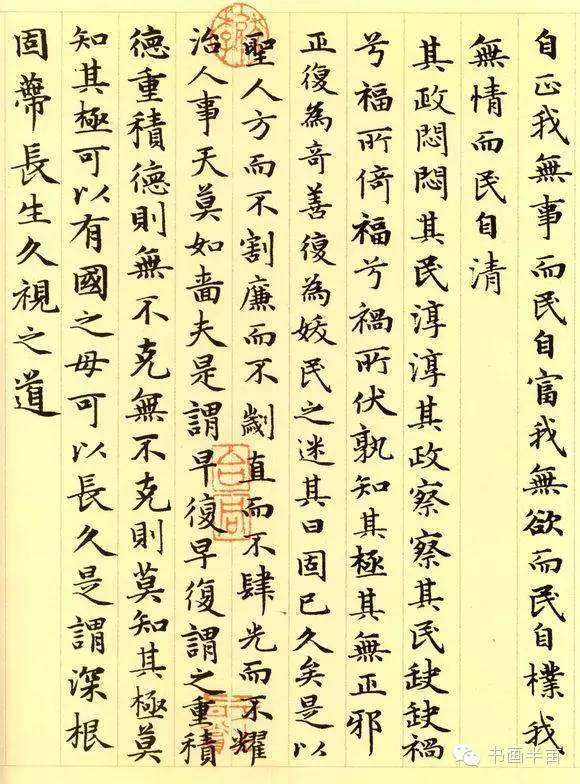 自正我無事而民自富我無欲而民自樸我
無情而民自清
其政悶悶其民淳淳其政察察其民缺缺禍
兮福所倚福兮禍所伏孰知其極其無正邪
正復為奇善復為妖民之迷其日固已久矣是以
聖人方而不割廉而不劌直而不肆光而不耀
治人事天莫如嗇夫是謂早復早復謂之重積
德重積德則無不克無不克則莫知其極莫
知其極可以有國有國之母可以長久是謂深根
固蔕長生久視之道
书画半亩